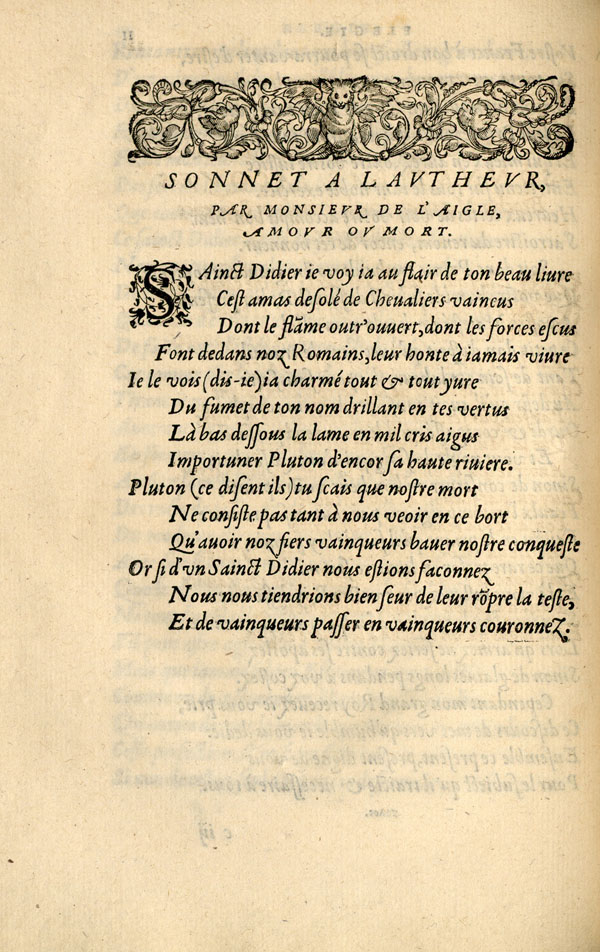 SONNET A LAVTHEVR,
PAR MONSIEVR DE L'AIGLE,
AMOVR OV MORT.
SAinct Didier ie voy ia au flair de ton beau liure
Cest amas desolé de Cheualiers vaincus
Dont le flãme outr'ouuert, dont les forces escus
Font dedans noz Romains, leur honte à iamais viure
Ie le vois (dis-ie) ia charmé tout & tout yure
Du fumet de ton nom drillant en tes vertus
Là bas dessous la lame en mil cris aigus
Importuner Pluton d'encor sa haute riuiere.
Pluton (ce disent ils) tu scais que nostre mort
Ne consiste pas tant à nous veoir en ce bort
Qu'auoir noz fiers vainqueurs bauer nostre conqueste
Or si d'vn Sainct Didier nous estions faconnez
Nous nous tiendrions bien seur de leur rõpre la teste,
Et de vainqueurs passer en vainqueurs couronnez.